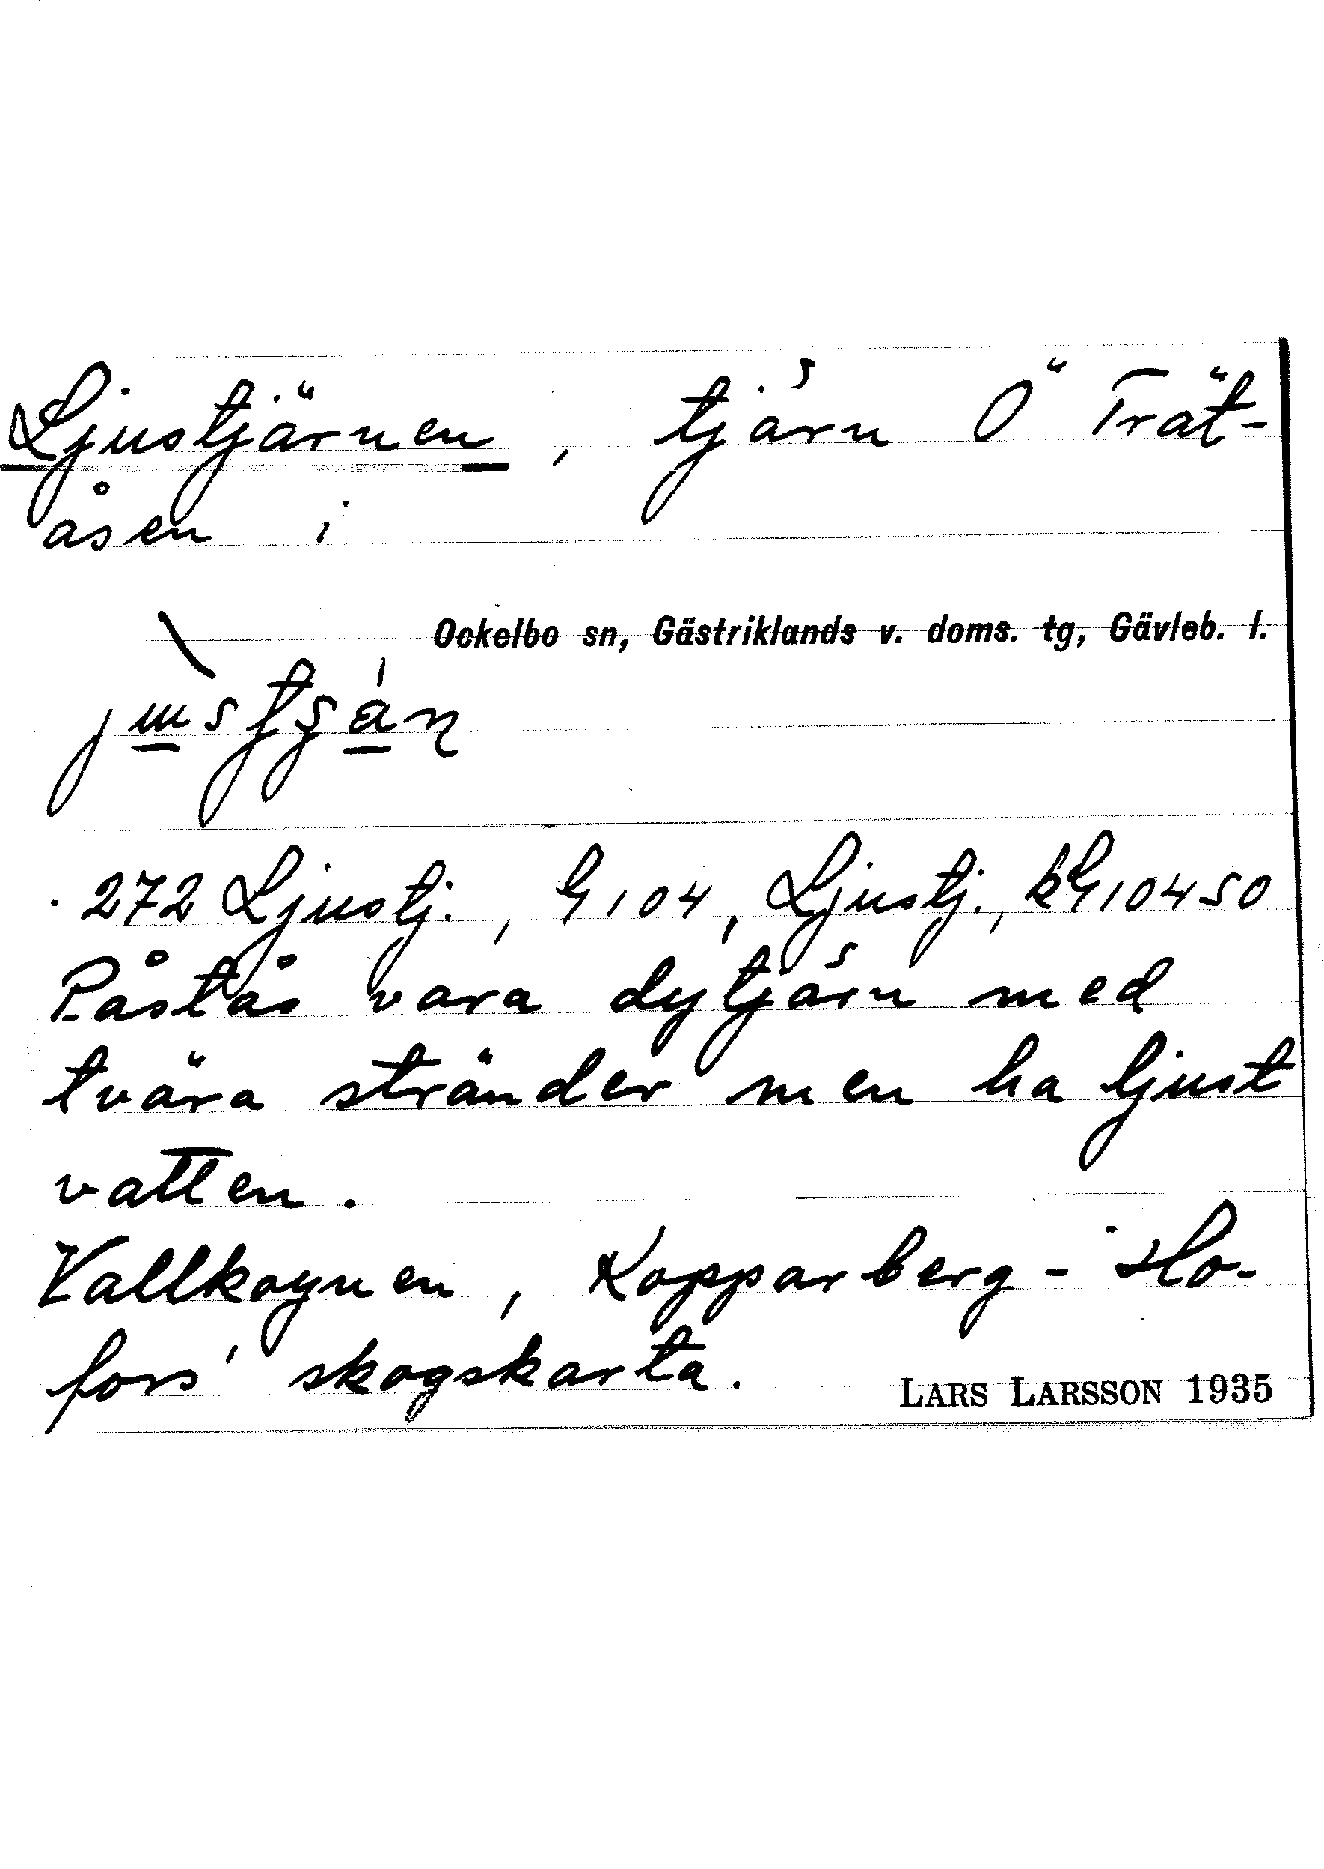 Ljustjärnen, tjärn Ö Trät-
åsen i
Ockelbo sn, Gästriklands v. doms. tg, Gävleb. l.
272 Ljustj., G 104, Ljustj., kG 10450
Påstås vara dytjärn med
tvära stränder men ha ljust
vatten.
Vallkoynen, Kopparberg-Ho-
fors' skogskarta.
LARS LARSSON 1935